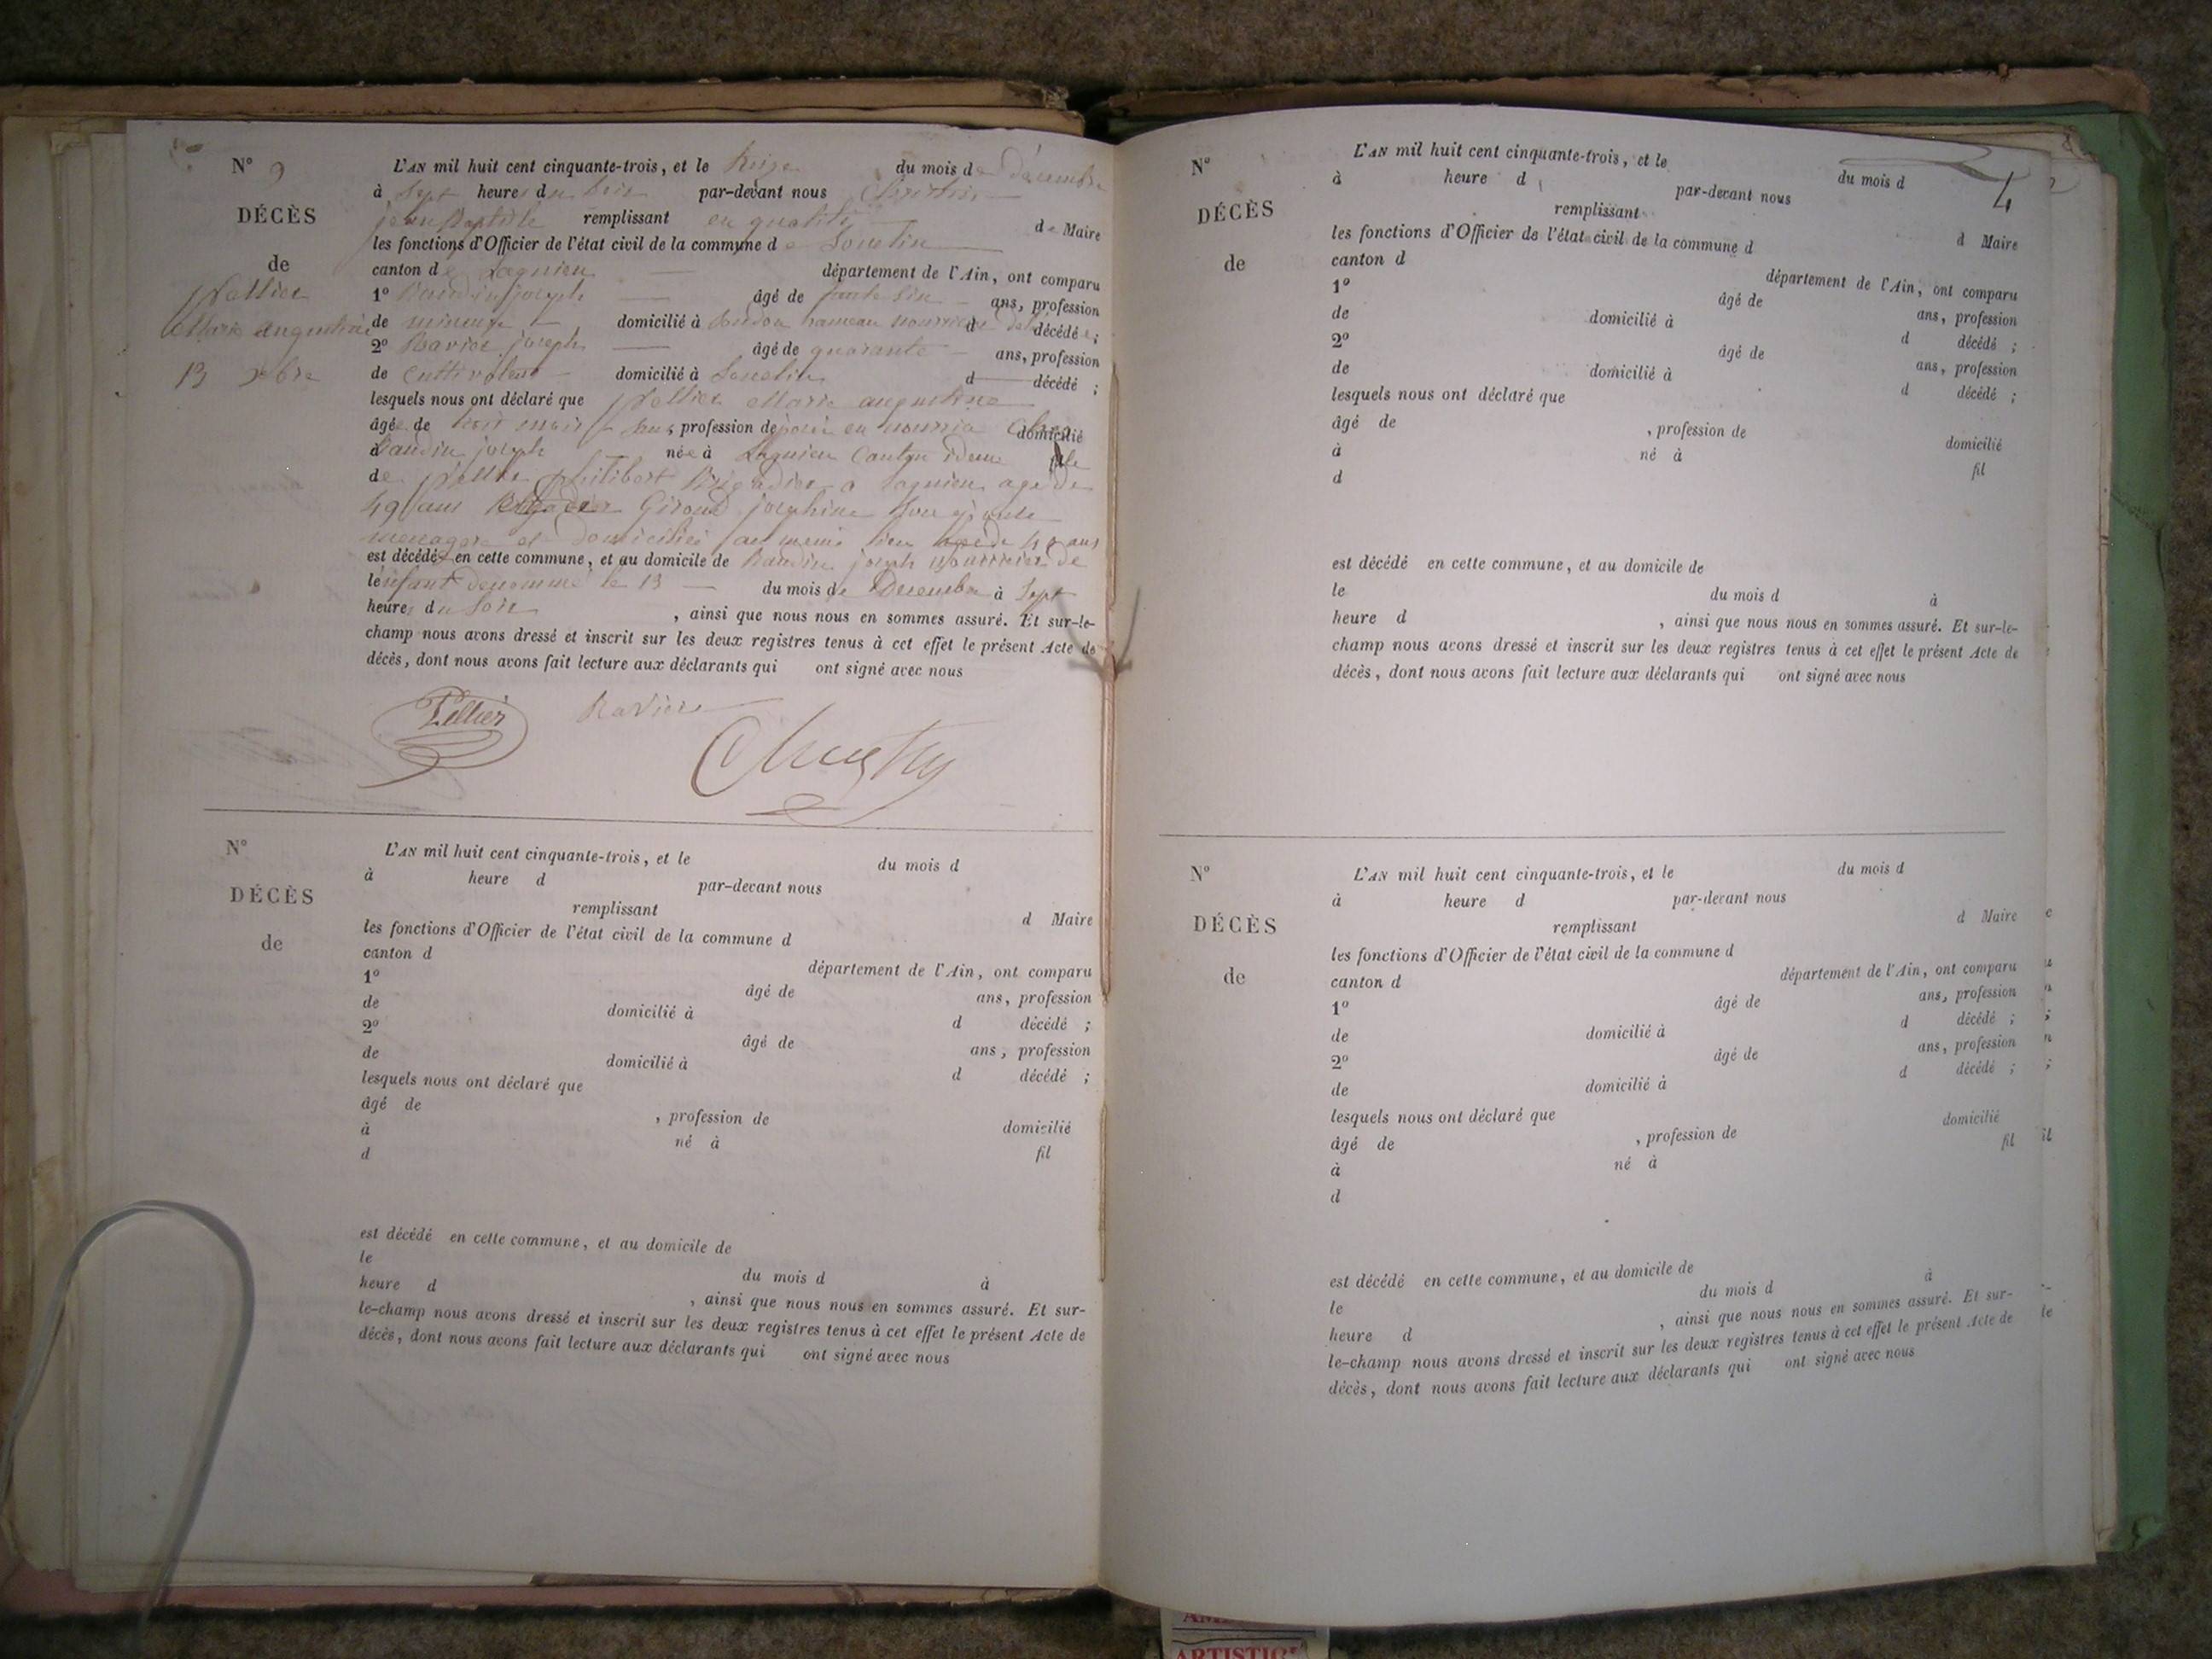 N° 9
DÉCÈS
de
Pellier
Marie augustine
13 xbre
L'AN mil huit cent cinquante-trois, et le treize du mois de décembre
à Sept heures du soir par-devant nous
jean Baptiste remplissant en qualité de Maire
les fonctions d'Officier de l'état civil de la commune de Souclin
canton de Lagnieu département de l'Ain, ont comparu
1° Baudin joseph âgé de ans, profession
de domicilié à hameau nourricier d décédée;
2° Ravier joseph âgé de quarante ans, profession
de Cultivateur domicilié à Souclin d décédé;
lesquels nous ont déclaré que Pellier Marie augustine
âgée de mois sans profession de en nourrice chez domicilié
à Baudin joseph née à Lagnieu Canton idem fille
de Pellier philibert Brigadier a Lagnieu age de
49 ans Giroud josephine
menagere et domiciliés au meme lieu age de ans
est décédée en cette commune, et au domicile de Baudin joseph nourricier de
l'enfant denommé le 13 du mois de Decembre à Sept
heures du Soir, ainsi que nous nous en sommes assuré. Et sur-le-
champ nous avons dressé et inscrit sur les deux registres tenus à cet effet le présent Acte de
décès, dont nous avons fait lecture aux déclarants qui ont signé avec nous
Pellier Ravier
N°
DÉCÈS
de
L'AN mil huit cent cinquante-trois, et le du mois d
à heure d par-devant nous
remplissant d Maire
les fonctions d'Officier de l'état civil de la commune d
canton d département de l'Ain, ont comparu
1° âgé de ans, profession
de domicilié à d décédé ;
2° âgé de ans, profession
de domicilié à d décédé ;
lesquels nous ont déclaré que
âgé de , profession de domicilié
à né à
d fil
est décédé en cette commune, et au domicile de
le du mois d à
heure d , ainsi que nous nous en sommes assuré. Et sur-
le-champ nous avons dressé et inscrit sur les deux registres tenus à cet effet le présent Acte de
décès, dont nous avons fait lecture aux déclarants qui ont signé avec nous
4
N°
DÉCÈS
de
L'AN mil huit cent cinquante-trois, et le du mois d
à heure d par-devant nous
remplissant d Maire
les fonctions d'Officier de l'état civil de la commune d
canton d département de l'Ain, ont comparu
1° âgé de ans, profession
de domicilié à d décédé ;
2° âgé de ans, profession
de domicilié à d décédé ;
lesquels nous ont déclaré que
âgé de , profession de domicilié
à né à fil
d
est décédé en cette commune, et au domicile de
le du mois d à
heure d , ainsi que nous nous en sommes assuré. Et sur-le-
champ nous avons dressé et inscrit sur les deux registres tenus à cet effet le présent Acte de
décès, dont nous avons fait lecture aux déclarants qui ont signé avec nous
N°
DÉCÈS
de
L'AN mil huit cent cinquante-trois, et le du mois d
à heure d par-devant nous
remplissant d Maire
les fonctions d'Officier de l'état civil de la commune d
canton d département de l'Ain, ont comparu
1° âgé de ans, profession
de domicilié à d décédé ;
2° âgé de ans, profession
de domicilié à d décédé ;
lesquels nous ont déclaré que
âgé de , profession de domicilié
à né à fil
d
est décédé en cette commune, et au domicile de
le du mois d à
heure d , ainsi que nous nous en sommes assuré. Et sur-
le-champ nous avons dressé et inscrit sur les deux registres tenus à cet effet le présent Acte de
décès, dont nous avons fait lecture aux déclarants qui ont signé avec nous